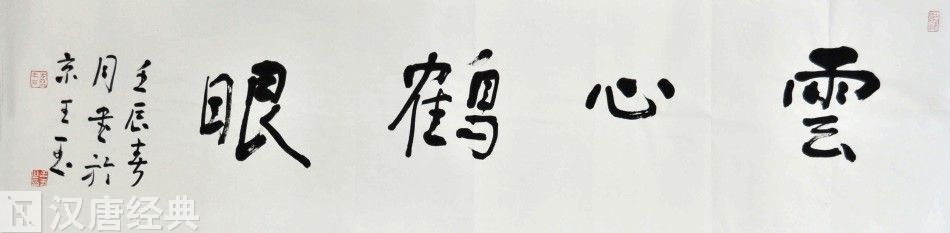 雲心鶴眼
壬辰春
月書於
京王玉
汉唐经典